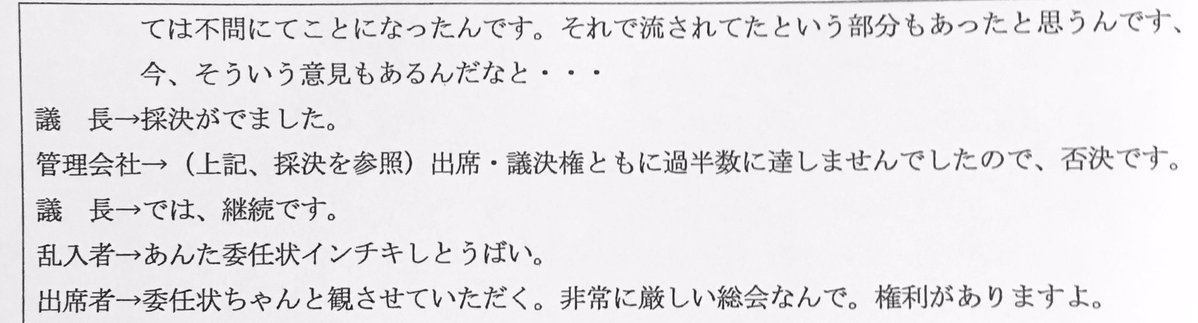 ては不問にてことになったんです。それで流されてたという部分もあったと思うんです、
今、そういう意見もあるんだなと・・・
議　長→採決がでました。
管理会社→（上記、採決を参照）出席・議決権ともに過半数に達しませんでしたので、否決です。
議　長→では、継続です。
乱入者→あんた委任状インチキしとうばい。
出席者→委任状ちゃんと観させていただく。非常に厳しい総会なんで。権利がありますよ。